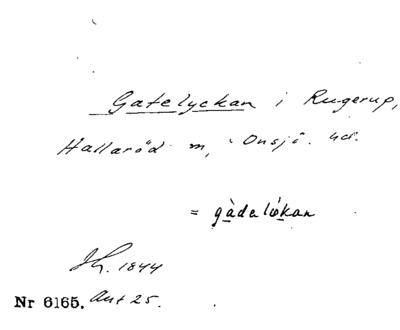 Gatelyckan i Rugerup,
Hallaröd m, Onsjö. hd.
= gàdalókan
1844
Nr 6165. Ant 25.